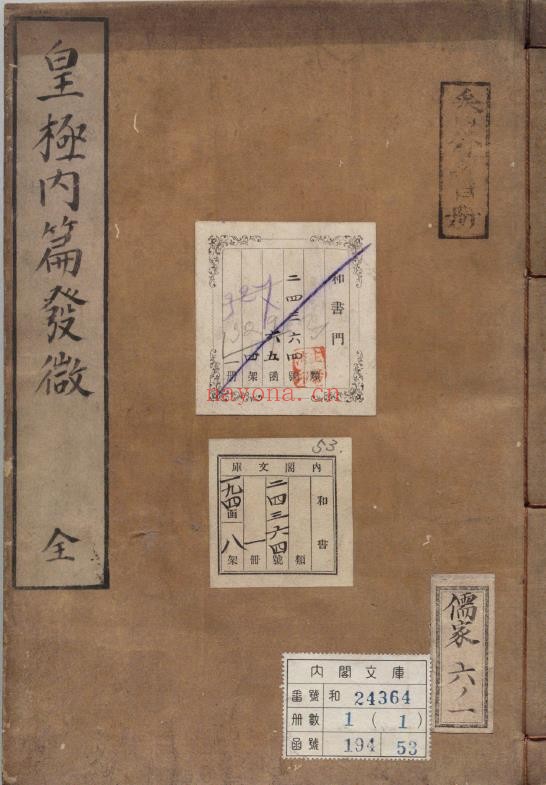 皇極内篇發微 全
和書門
二四三六四
類
號
六五函
四架
一冊
nayona.cn
53.
内閣文庫
和書
類
二四三六四號
一冊
一九四函
八架
儒家 六ノ一
内閣文庫
番號 和 24364
册數 1 (1)
函號 194 53